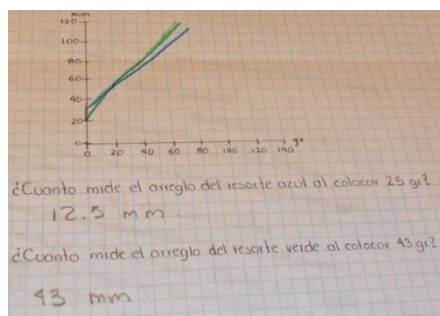 mm
120
100
80
60
40
20
0
0 20 40 60 80 100 120 140 gr
¿Cuanto mide el arreglo del resorte azul al colocar 25 gr?
12.5 mm
¿Cuanto mide el arreglo del resorte verde al colocar 43 gr?
43 mm